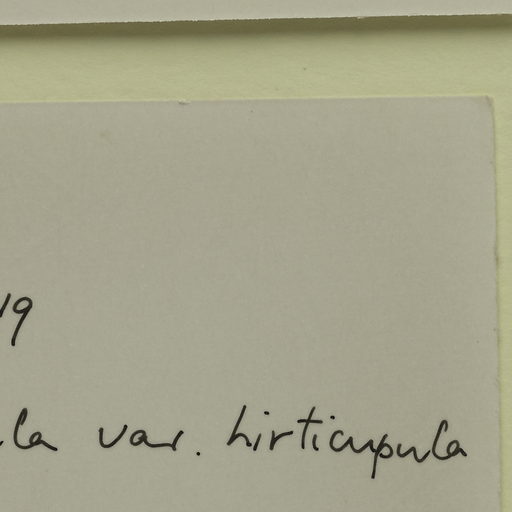 19
la var. hirticupula